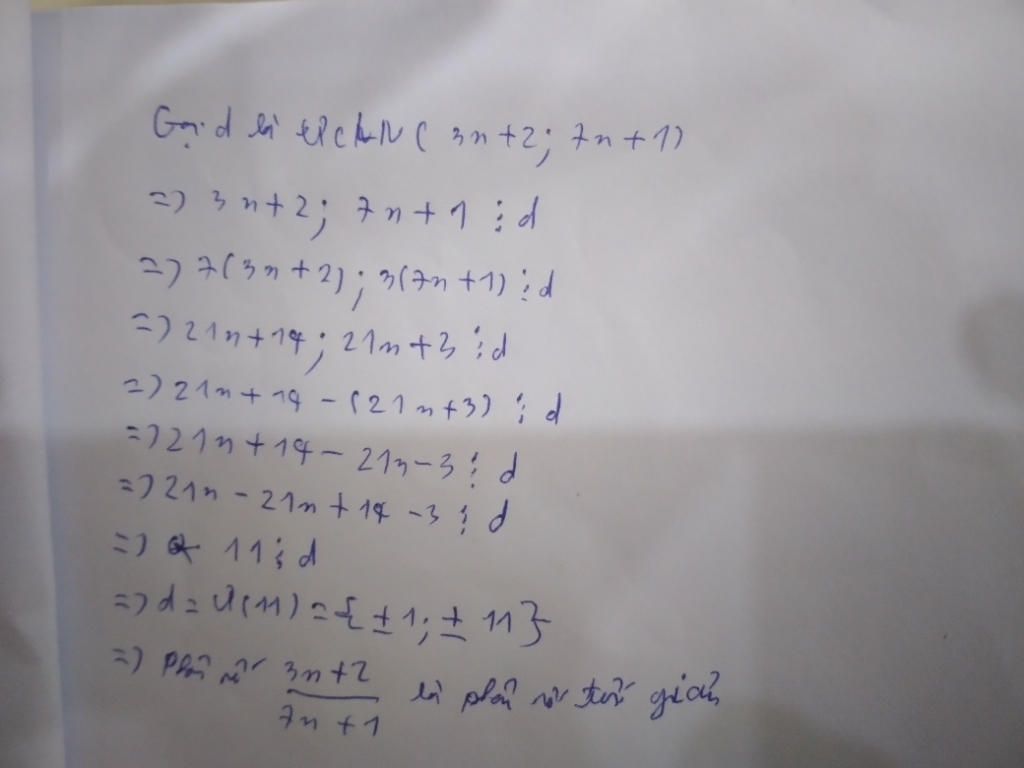 Gọi d là ƯCLN( 3n+2; 7n+1)
=> 3n+2; 7n+1 ⋮ d
=> 7(3n+2); 3(7n+1) ⋮ d
=> 21n+14; 21n+3 ⋮ d
=> 21n+14 - (21n+3) ⋮ d
=> 21n+14 - 21n-3 ⋮ d
=> 21n - 21n+14 -3 ⋮ d
=> 11 ⋮ d
=> d = Ư(11) = {±1; ±11}
=> phân số \frac{3n+2}{7n+1} là phân số tối giản